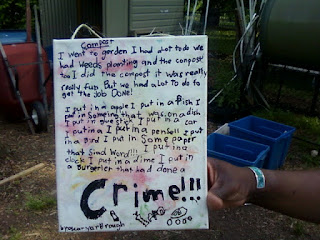 Compost
I went to garden I had alot todo we
had weeds planting and the compost
too I did the compost it was really
really fun. But we had alot to do to
get the Job Done!
I put in a apple I put in a fish I
put in something that was on a dish
I put in glue stick I put in a car
I put in a I put in a pencil I put
in a Bird I put in some paper
I put in that
that Said Word!!! I put in a
clock I put in a dime I put in
a Burgerler that had done a
Crime!!!